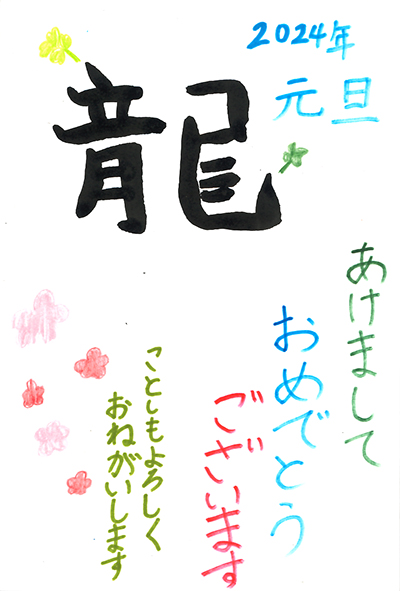 2024年
元旦
龍
あけまして
おめでとう
ございます
ことしもよろしく
おねがいします